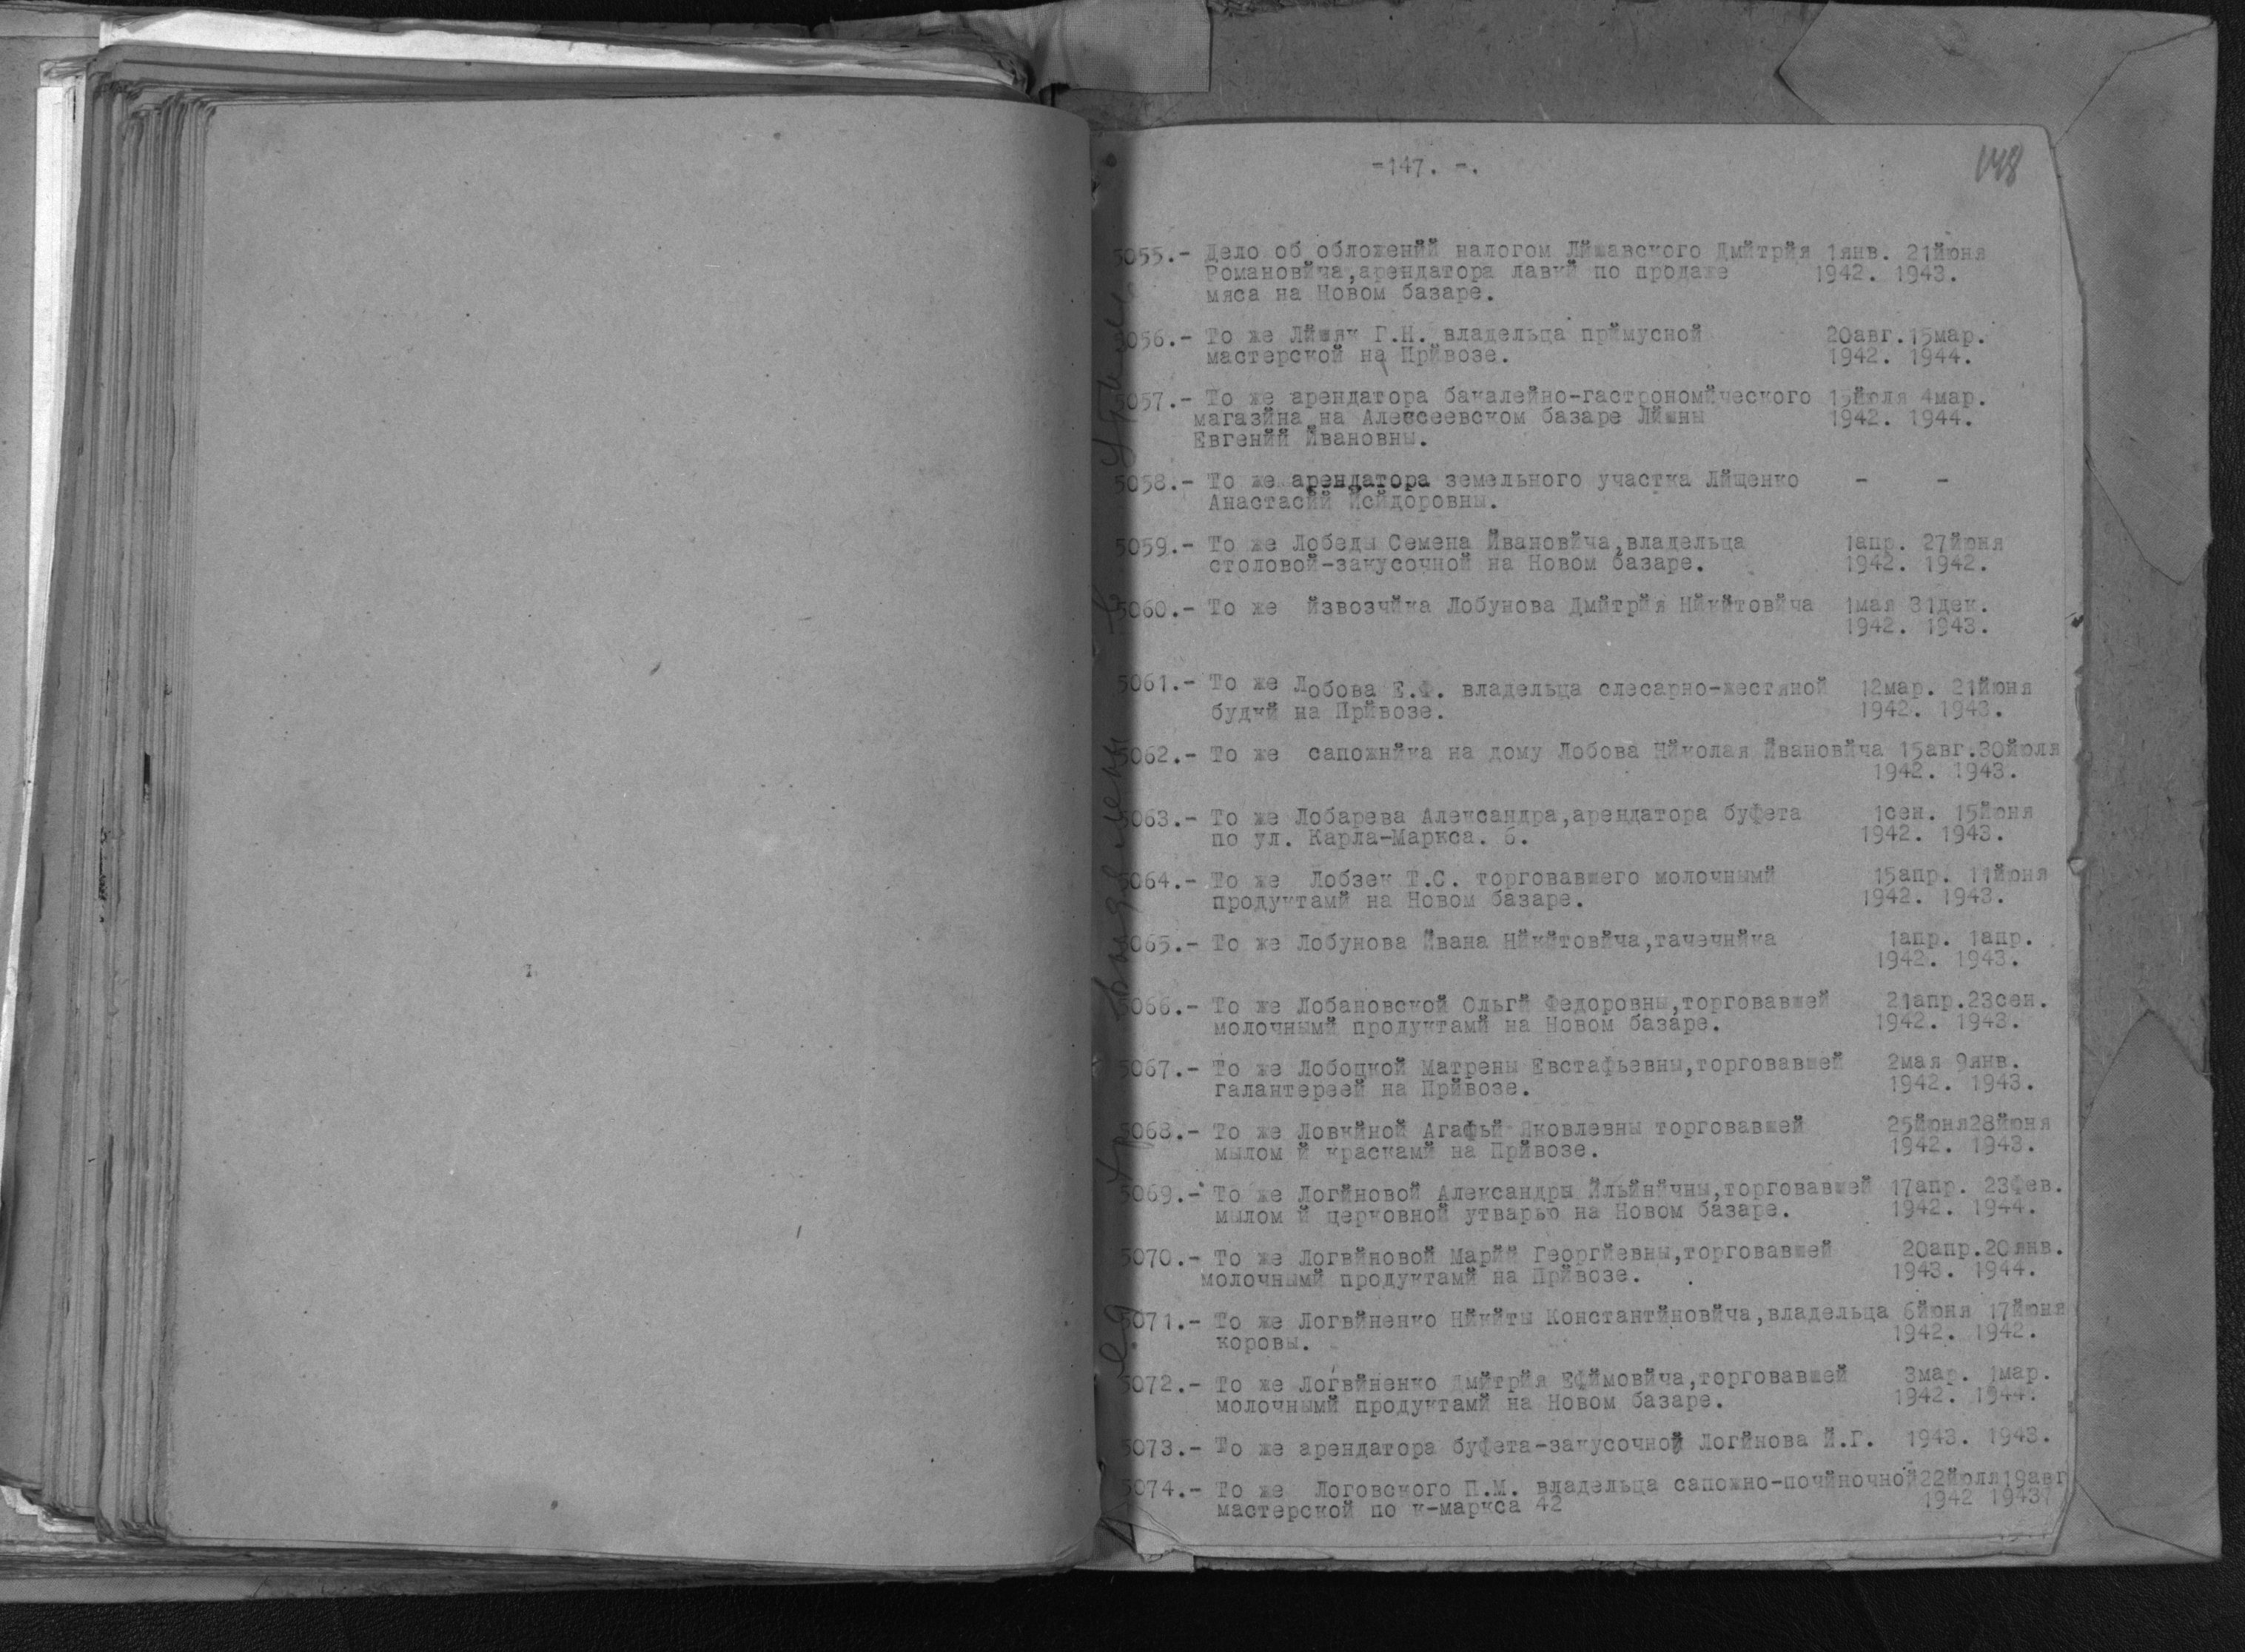 -147. -.
148
5055.- Дело об обложенйй налогом Лйшавского Дмйтрйя 1янв. 21йюня
Романовйча,арендатора лавкй по продаже 1942. 1943.
мяса на Новом базаре.
5056.- То же Лйшяк Г.Н. владельца прймусной 20авг.15мар.
мастерской на Прйвозе. 1942. 1944.
5057.- То же арендатора бакалейно-гастрономйческого 15йюля 4мар.
магазйна на Алексеевском базаре Лйшны 1942. 1944.
Евгенйй Йвановны.
5058.- То же арендатора земельного участка Лйщенко - -
Анастасйй Йсйдоровны.
5059.- То же Лобеды Семена Йвановйча,владельца 1апр. 27йюня
столовой-закусочной на Новом базаре. 1942. 1942.
5060.- То же йзвозчйка Лобунова Дмйтрйя Нйкйтовйча 1мая 31дек.
1942. 1943.
5061.- То же Лобова Е.Ф. владельца слесарно-жестяной 12мар. 21йюня
будкй на Прйвозе. 1942. 1943.
5062.- То же сапожнйка на дому Лобова Нйколая Йвановйча 15авг.30йюля
1942. 1943.
5063.- То же Лобарева Александра,арендатора буфета 1сен. 15йюня
по ул. Карла-Маркса. 6. 1942. 1943.
5064.- То же Лобзек Т.С. торговавшего молочнымй 15апр. 11йюня
продуктамй на Новом базаре. 1942. 1943.
5065.- То же Лобунова Йвана Нйкйтовйча,тачечнйка 1апр. 1апр.
1942. 1943.
5066.- То же Лобановской Ольгй Федоровны,торговавшей 21апр.23сен.
молочнымй продуктамй на Новом базаре. 1942. 1943.
5067.- То же Лобоцкой Матрены Евстафьевны,торговавшей 2мая 9янв.
галантереей на Прйвозе. 1942. 1943.
5068.- То же Ловкйной Агафьй Яковлевны торговавшей 25йюня28йюня
мылом й краскамй на Прйвозе. 1942. 1943.
5069.- То же Логйновой Александры Йльйнйчны,торговавшей 17апр. 23фев.
мылом й церковной утварью на Новом базаре. 1942. 1944.
5070.- То же Логвйновой Марйй Георгйевны,торговавшей 20апр.20янв.
молочнымй продуктамй на Прйвозе. 1943. 1944.
5071.- То же Логвйненко Нйкйты Константйновйча,владельца 6йюня 17йюня
коровы. 1942. 1942.
5072.- То же Логвйненко Дмйтрйя Ефймовйча,торговавшей 3мар. 1мар.
молочнымй продуктамй на Новом базаре. 1942. 1944.
5073.- То же арендатора буфета-закусочной Логйнова Й.Г. 1943. 1943.
5074.- То же Логовского П.М. владельца сапожно-почйночной22йюля19авг
мастерской по к-маркса 42 1942 1943